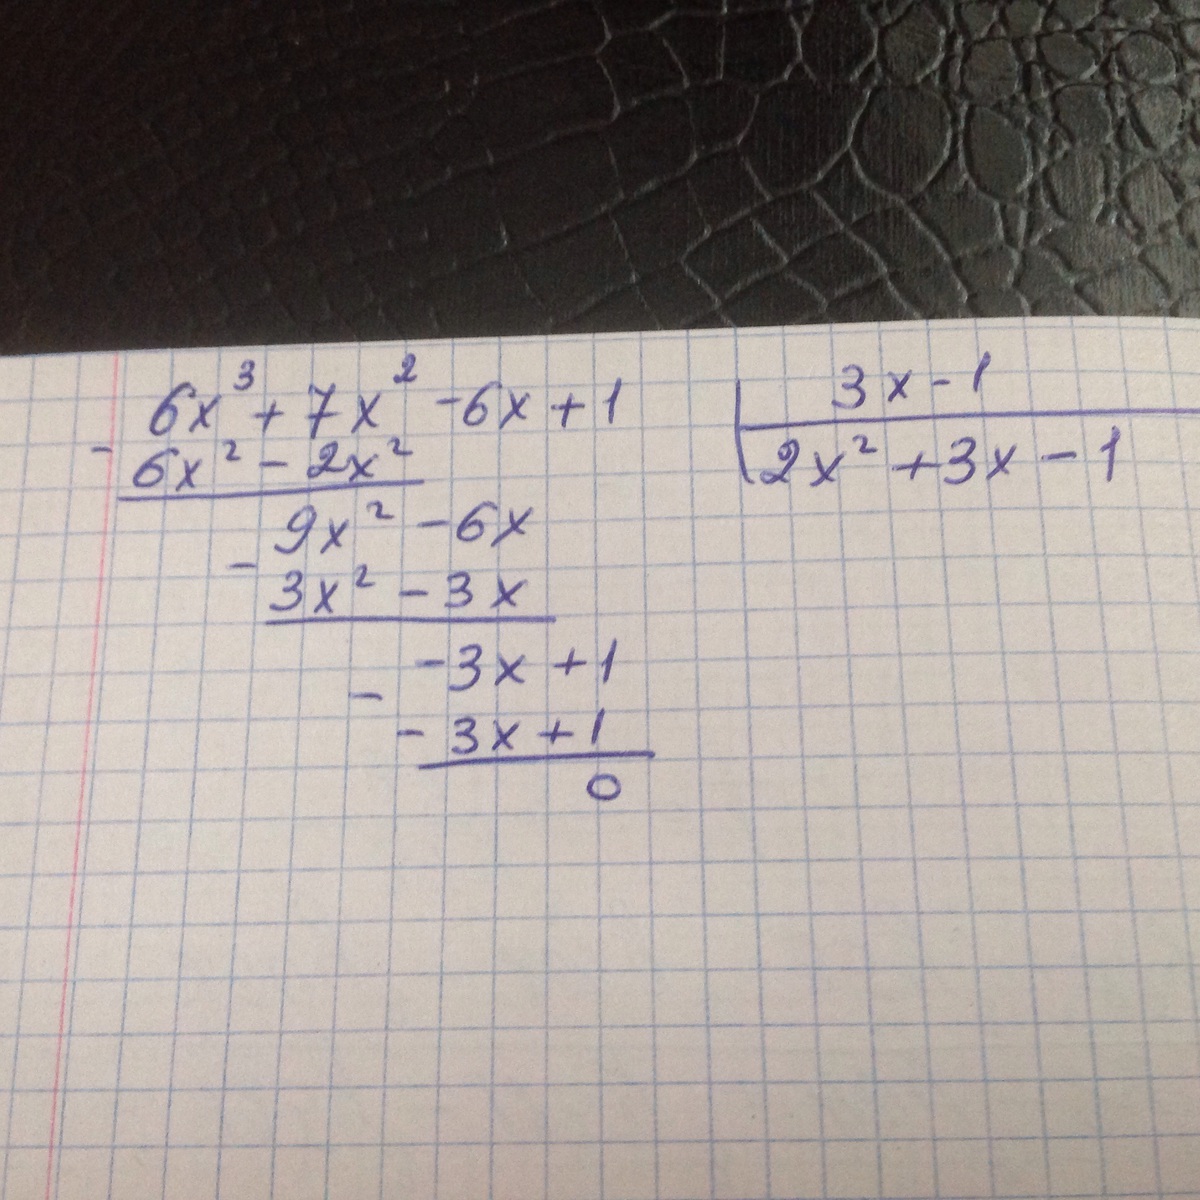 6x³ + 7x² - 6x + 1 | 3x - 1
- 6x² - 2x² | 2x² + 3x - 1
9x² - 6x
- 3x² - 3x
-3x + 1
- -3x + 1
0